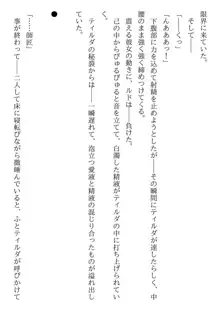 限界に来ていた。
「――くっ」
「んああああっ！」
下腹部に力を込めて射精を止めようとしたが――その瞬間にティルダが達したらしく、中
の締まりが強く強く締めつけてくる。
蠢える彼女の動きに、ルドは負けた。
己の中からびゅるびゅると音を立てて、白濁した精液がティルダの中に打ち上げられていき、
ティルダの秘裂からは――一瞬遅れて、泡立つ愛液と精液の混じり合ったものが溢れ出し
ていた。
●
事が終わって――二人して床に寝転びながら微睡んでいると、ふとティルダが呼びかけて
「……師匠」